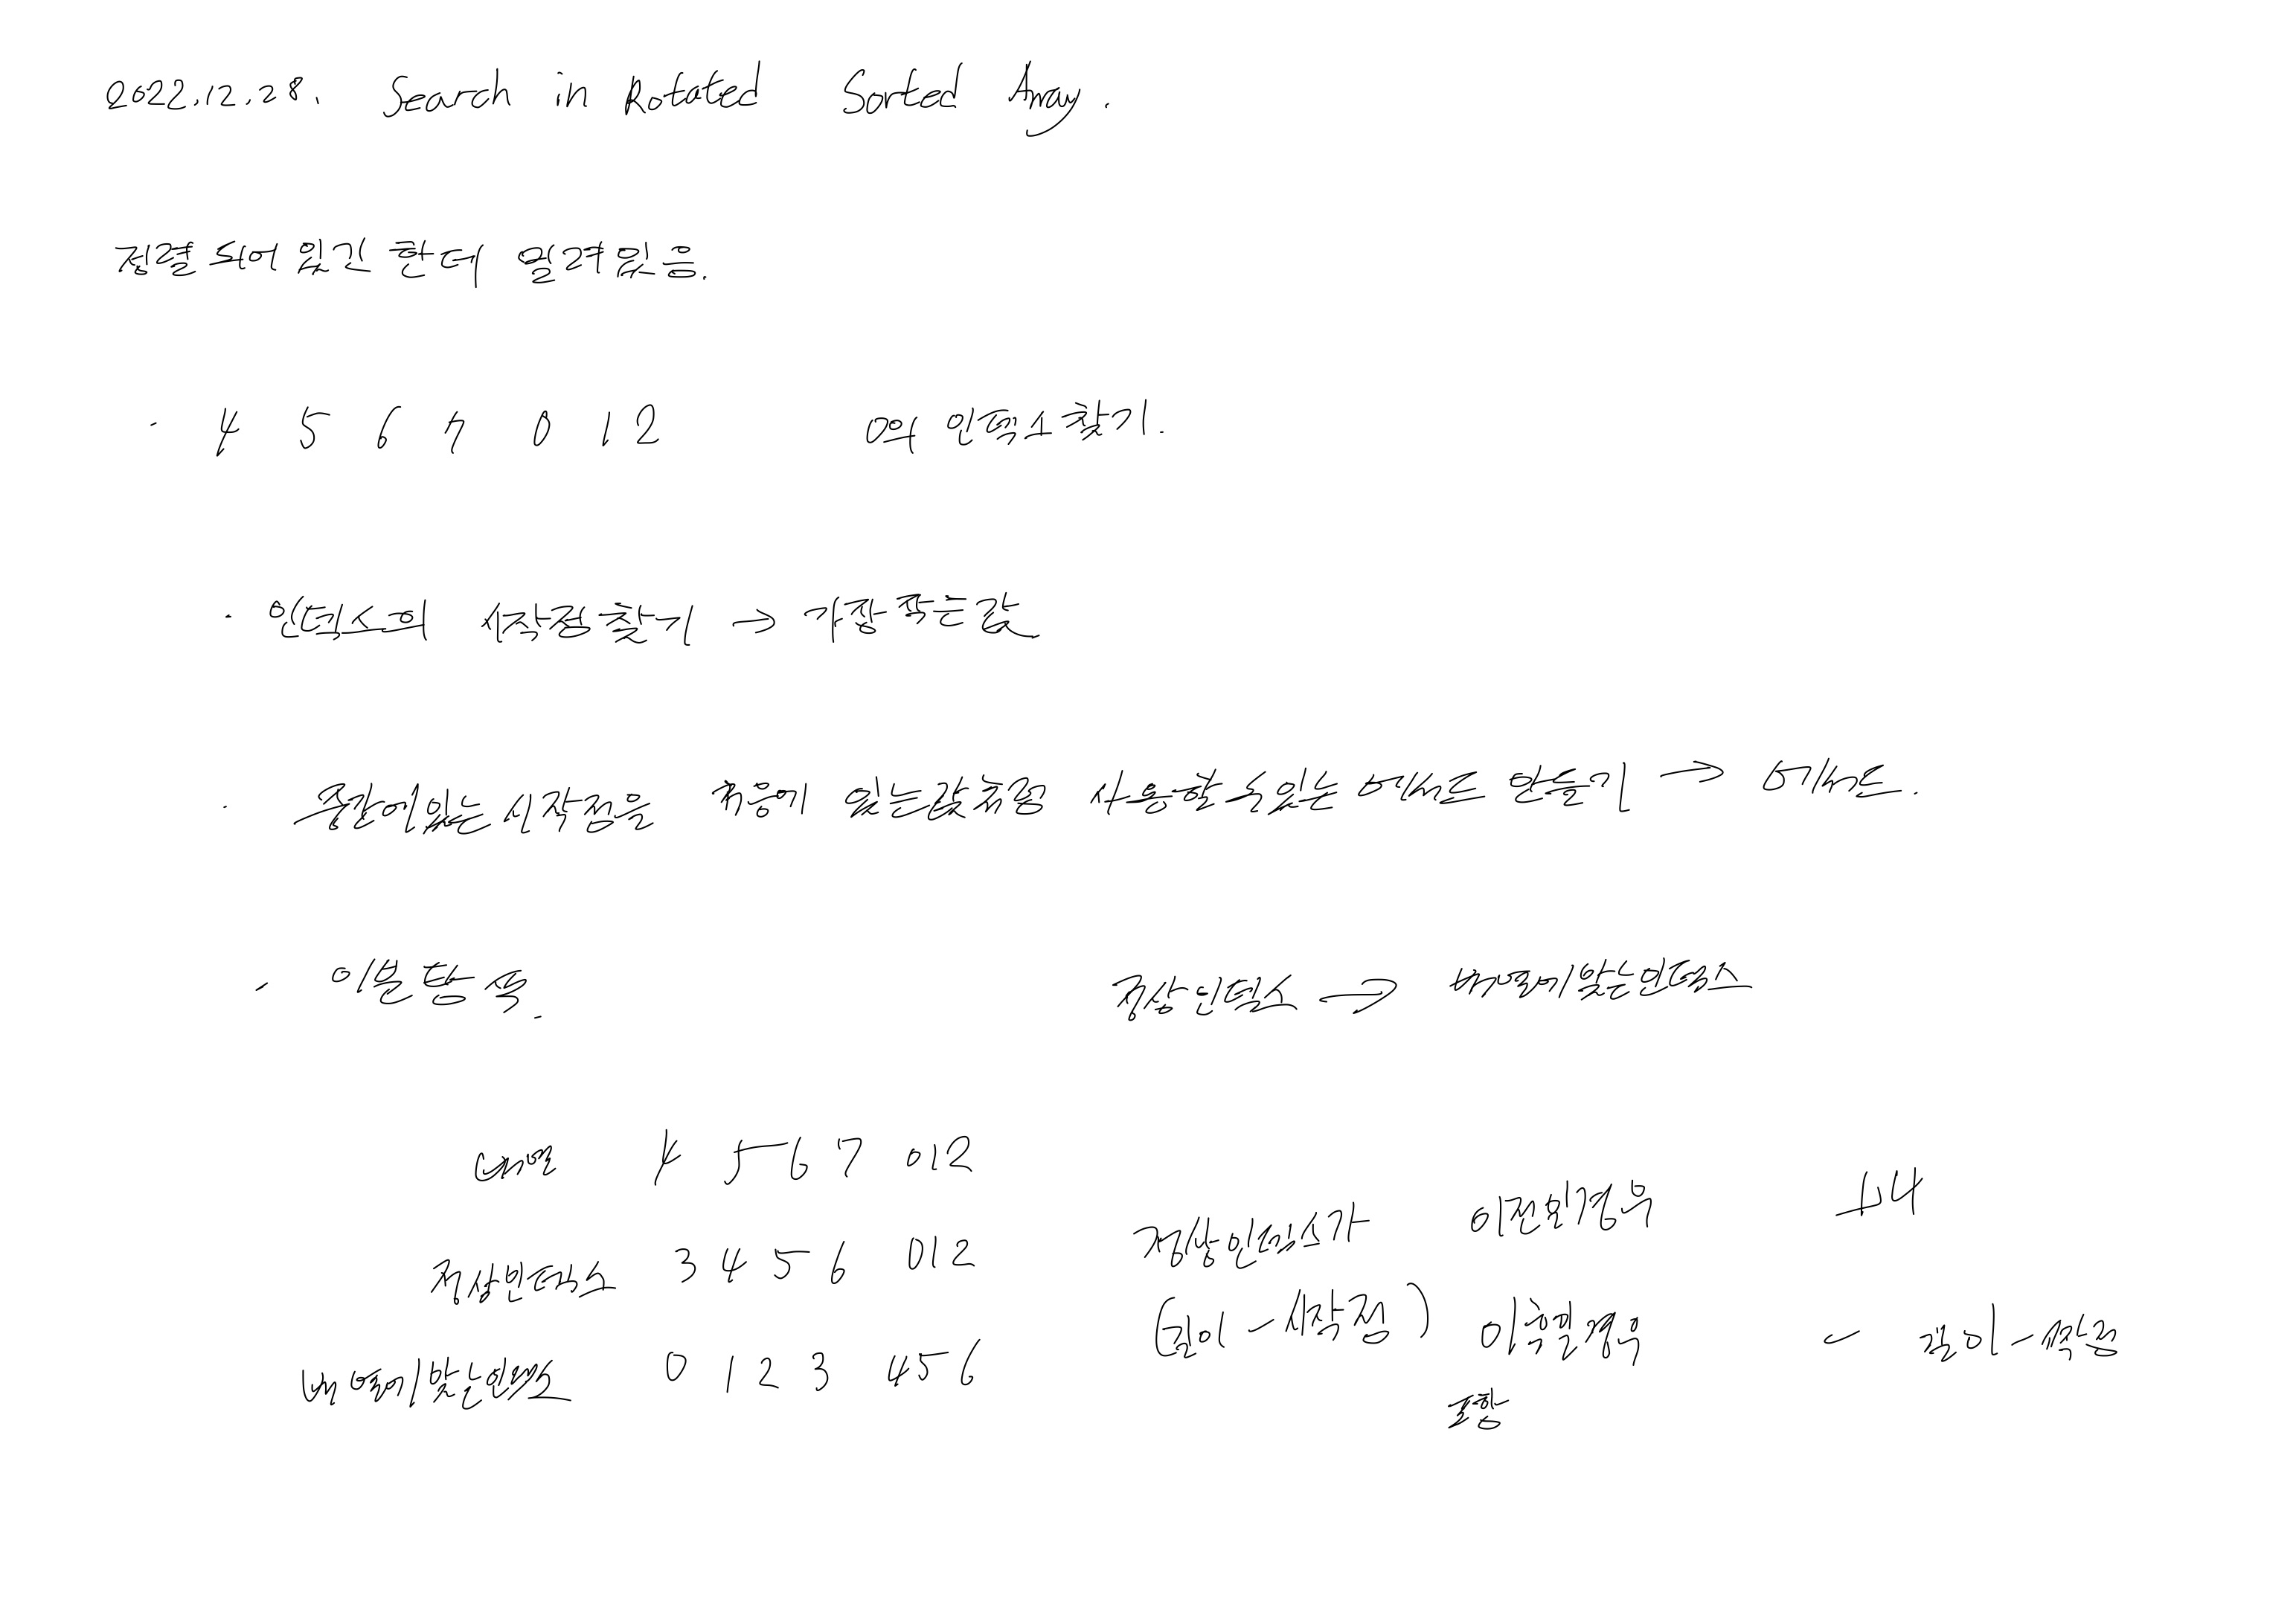 2022.12.28. Search in Rotated Sorted Array.
정렬 되어 있긴 한데 밀려있음.
· 4 5 6 7 0 1 2 0의 인덱스찾기.
· 인덱스의 시작점찾기 → 가장작은값
· 중간에있는시작점을 처음에 있는값처럼 사용할수있는 메서드 만들기 → 메서드.
· 이분탐색. 정상인덱스 → 배열에맞는인덱스
배열 4 5 6 7 0 1 2
정상인덱스 3 4 5 6 0 1 2 정상인덱스가 이전일경우 +4
배열에맞는인덱스 0 1 2 3 4 5 6 (길이 - 시작점) 이후일경우 - 길이-시작점
포함